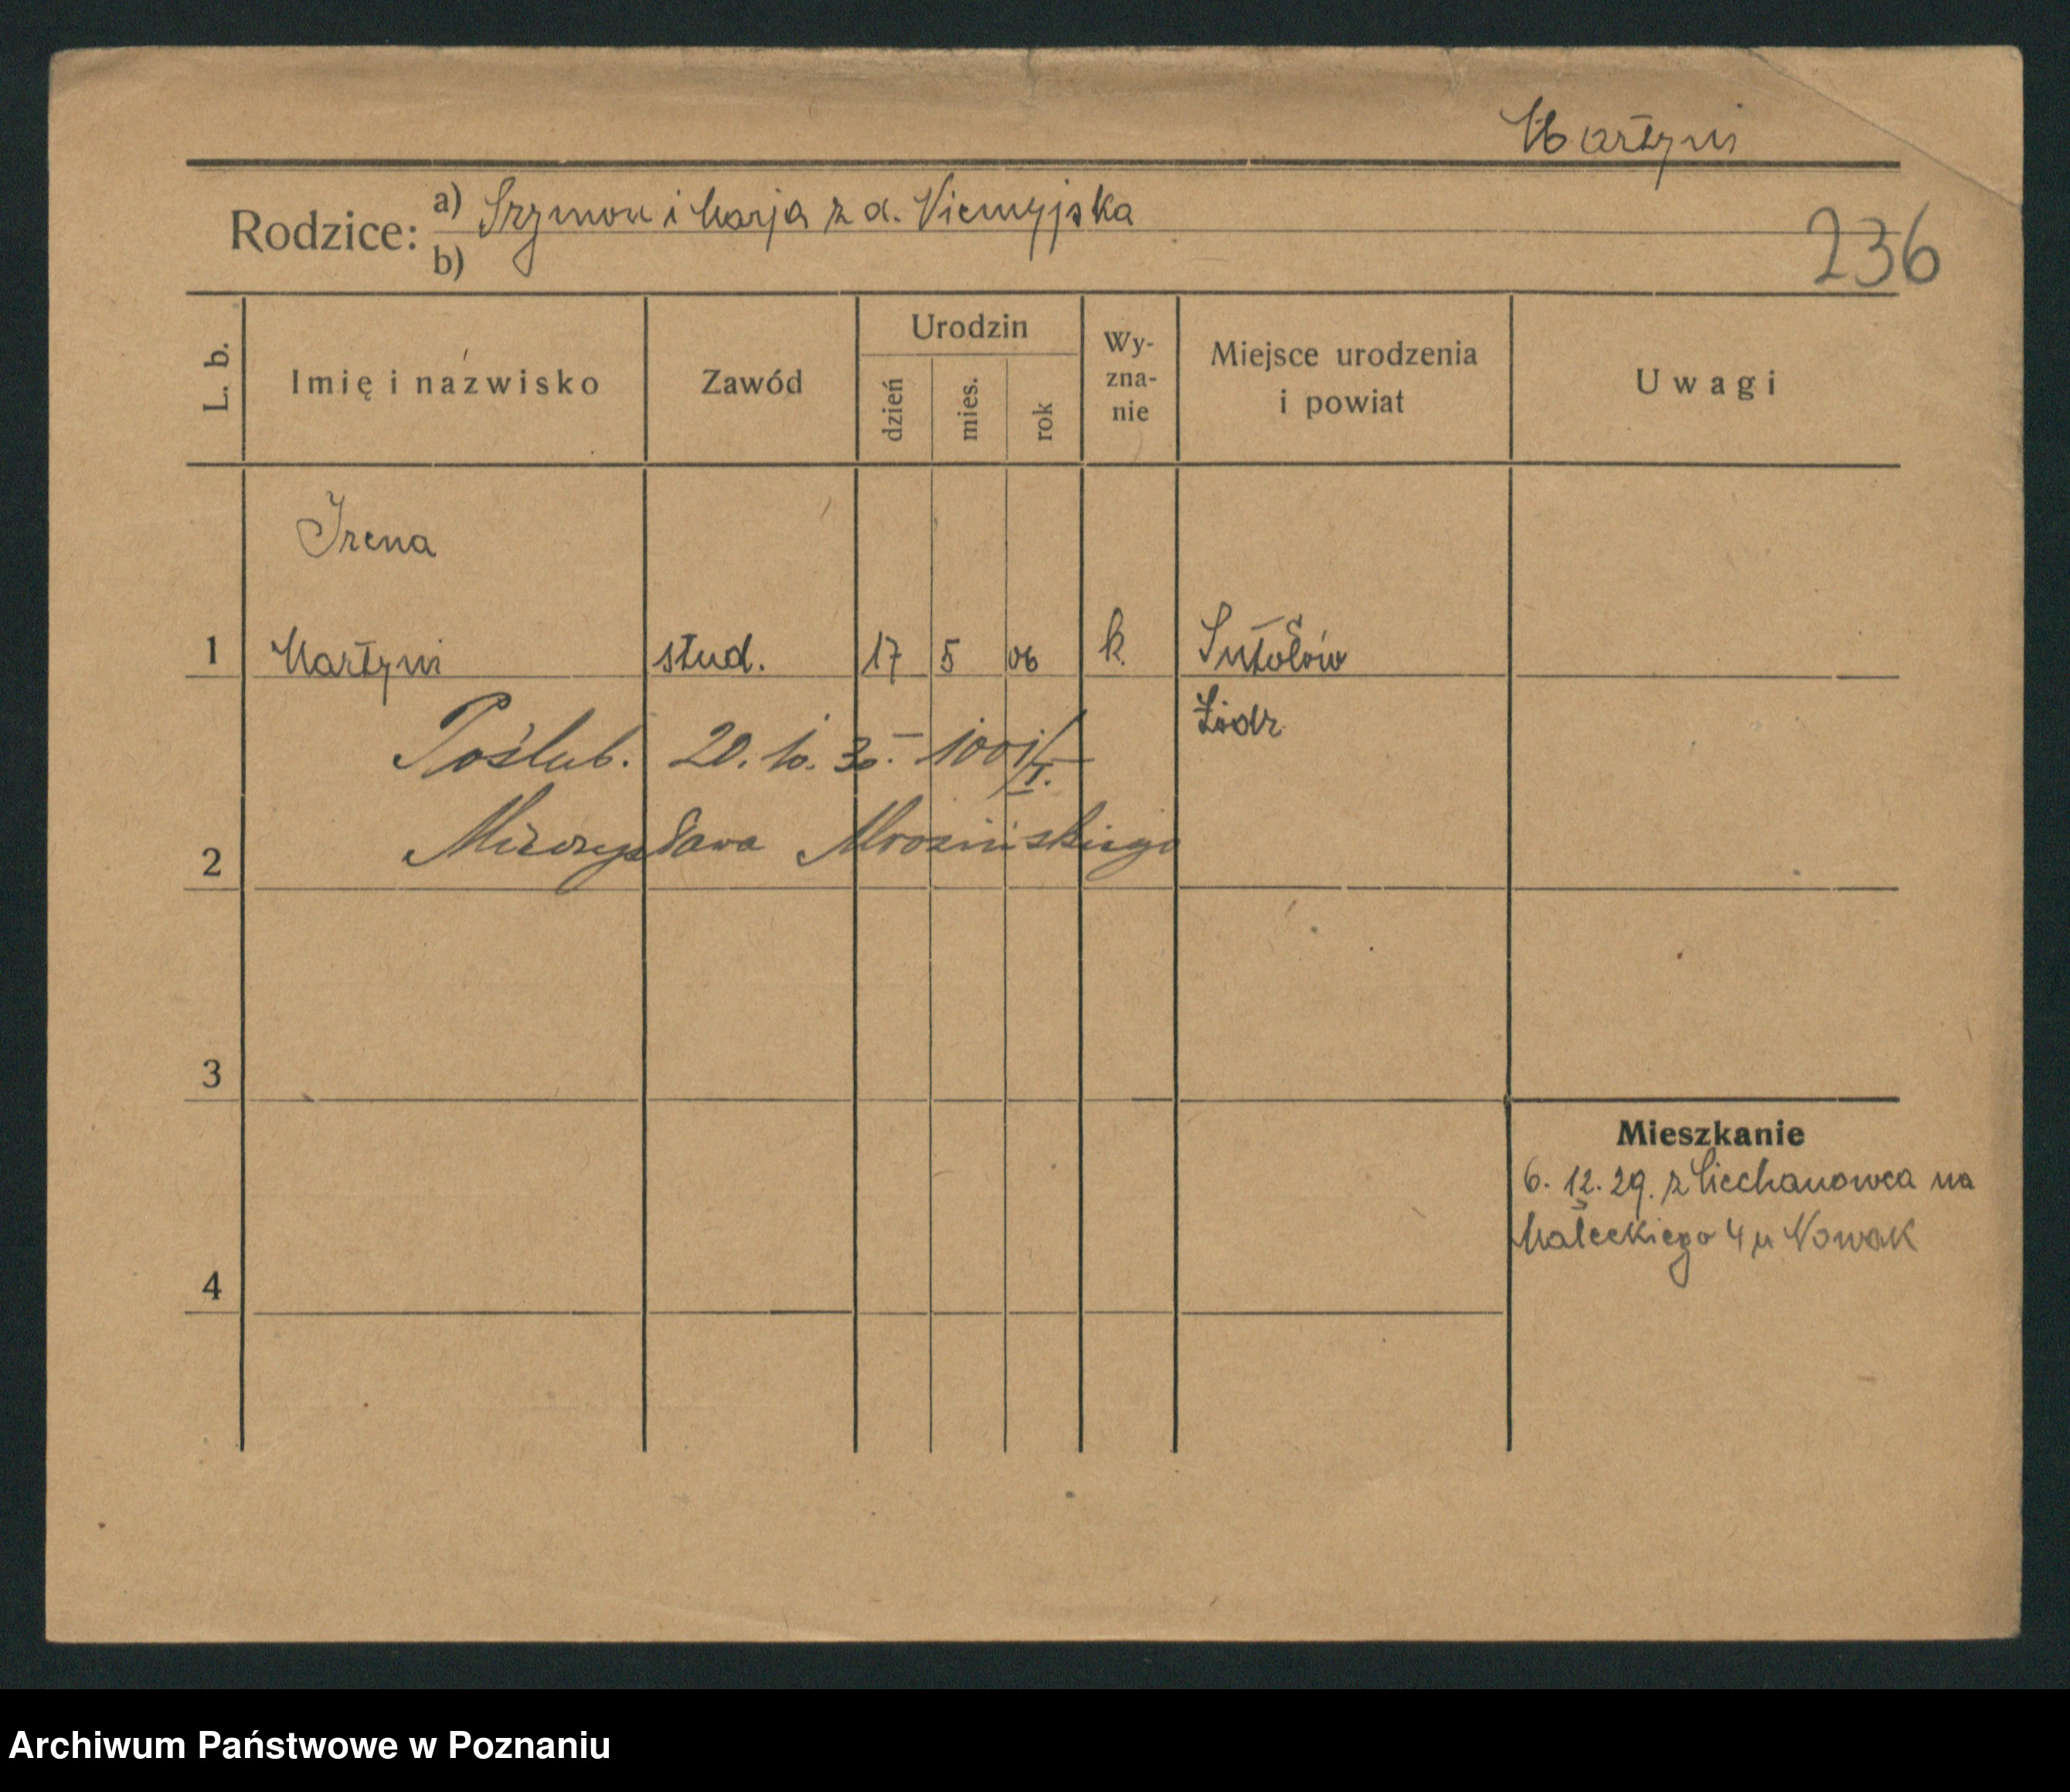 Martyni
Rodzice: a) Szymon i Marja z d. Niemyjska
b)
236
L. b. Imię i nazwisko Zawód Urodzin dzień mies. rok Wy-zna-nie Miejsce urodzenia i powiat Uwagi
Irena
1 Martyni stud. 17 5 06 k.
Poślub. 20. 10. 30.
2 Mieczysława Mrozińskiego
3
Mieszkanie
6. 12. 29. z Ciechanowca na
Małeckiego 4 u Nowak
4
Archiwum Państwowe w Poznaniu